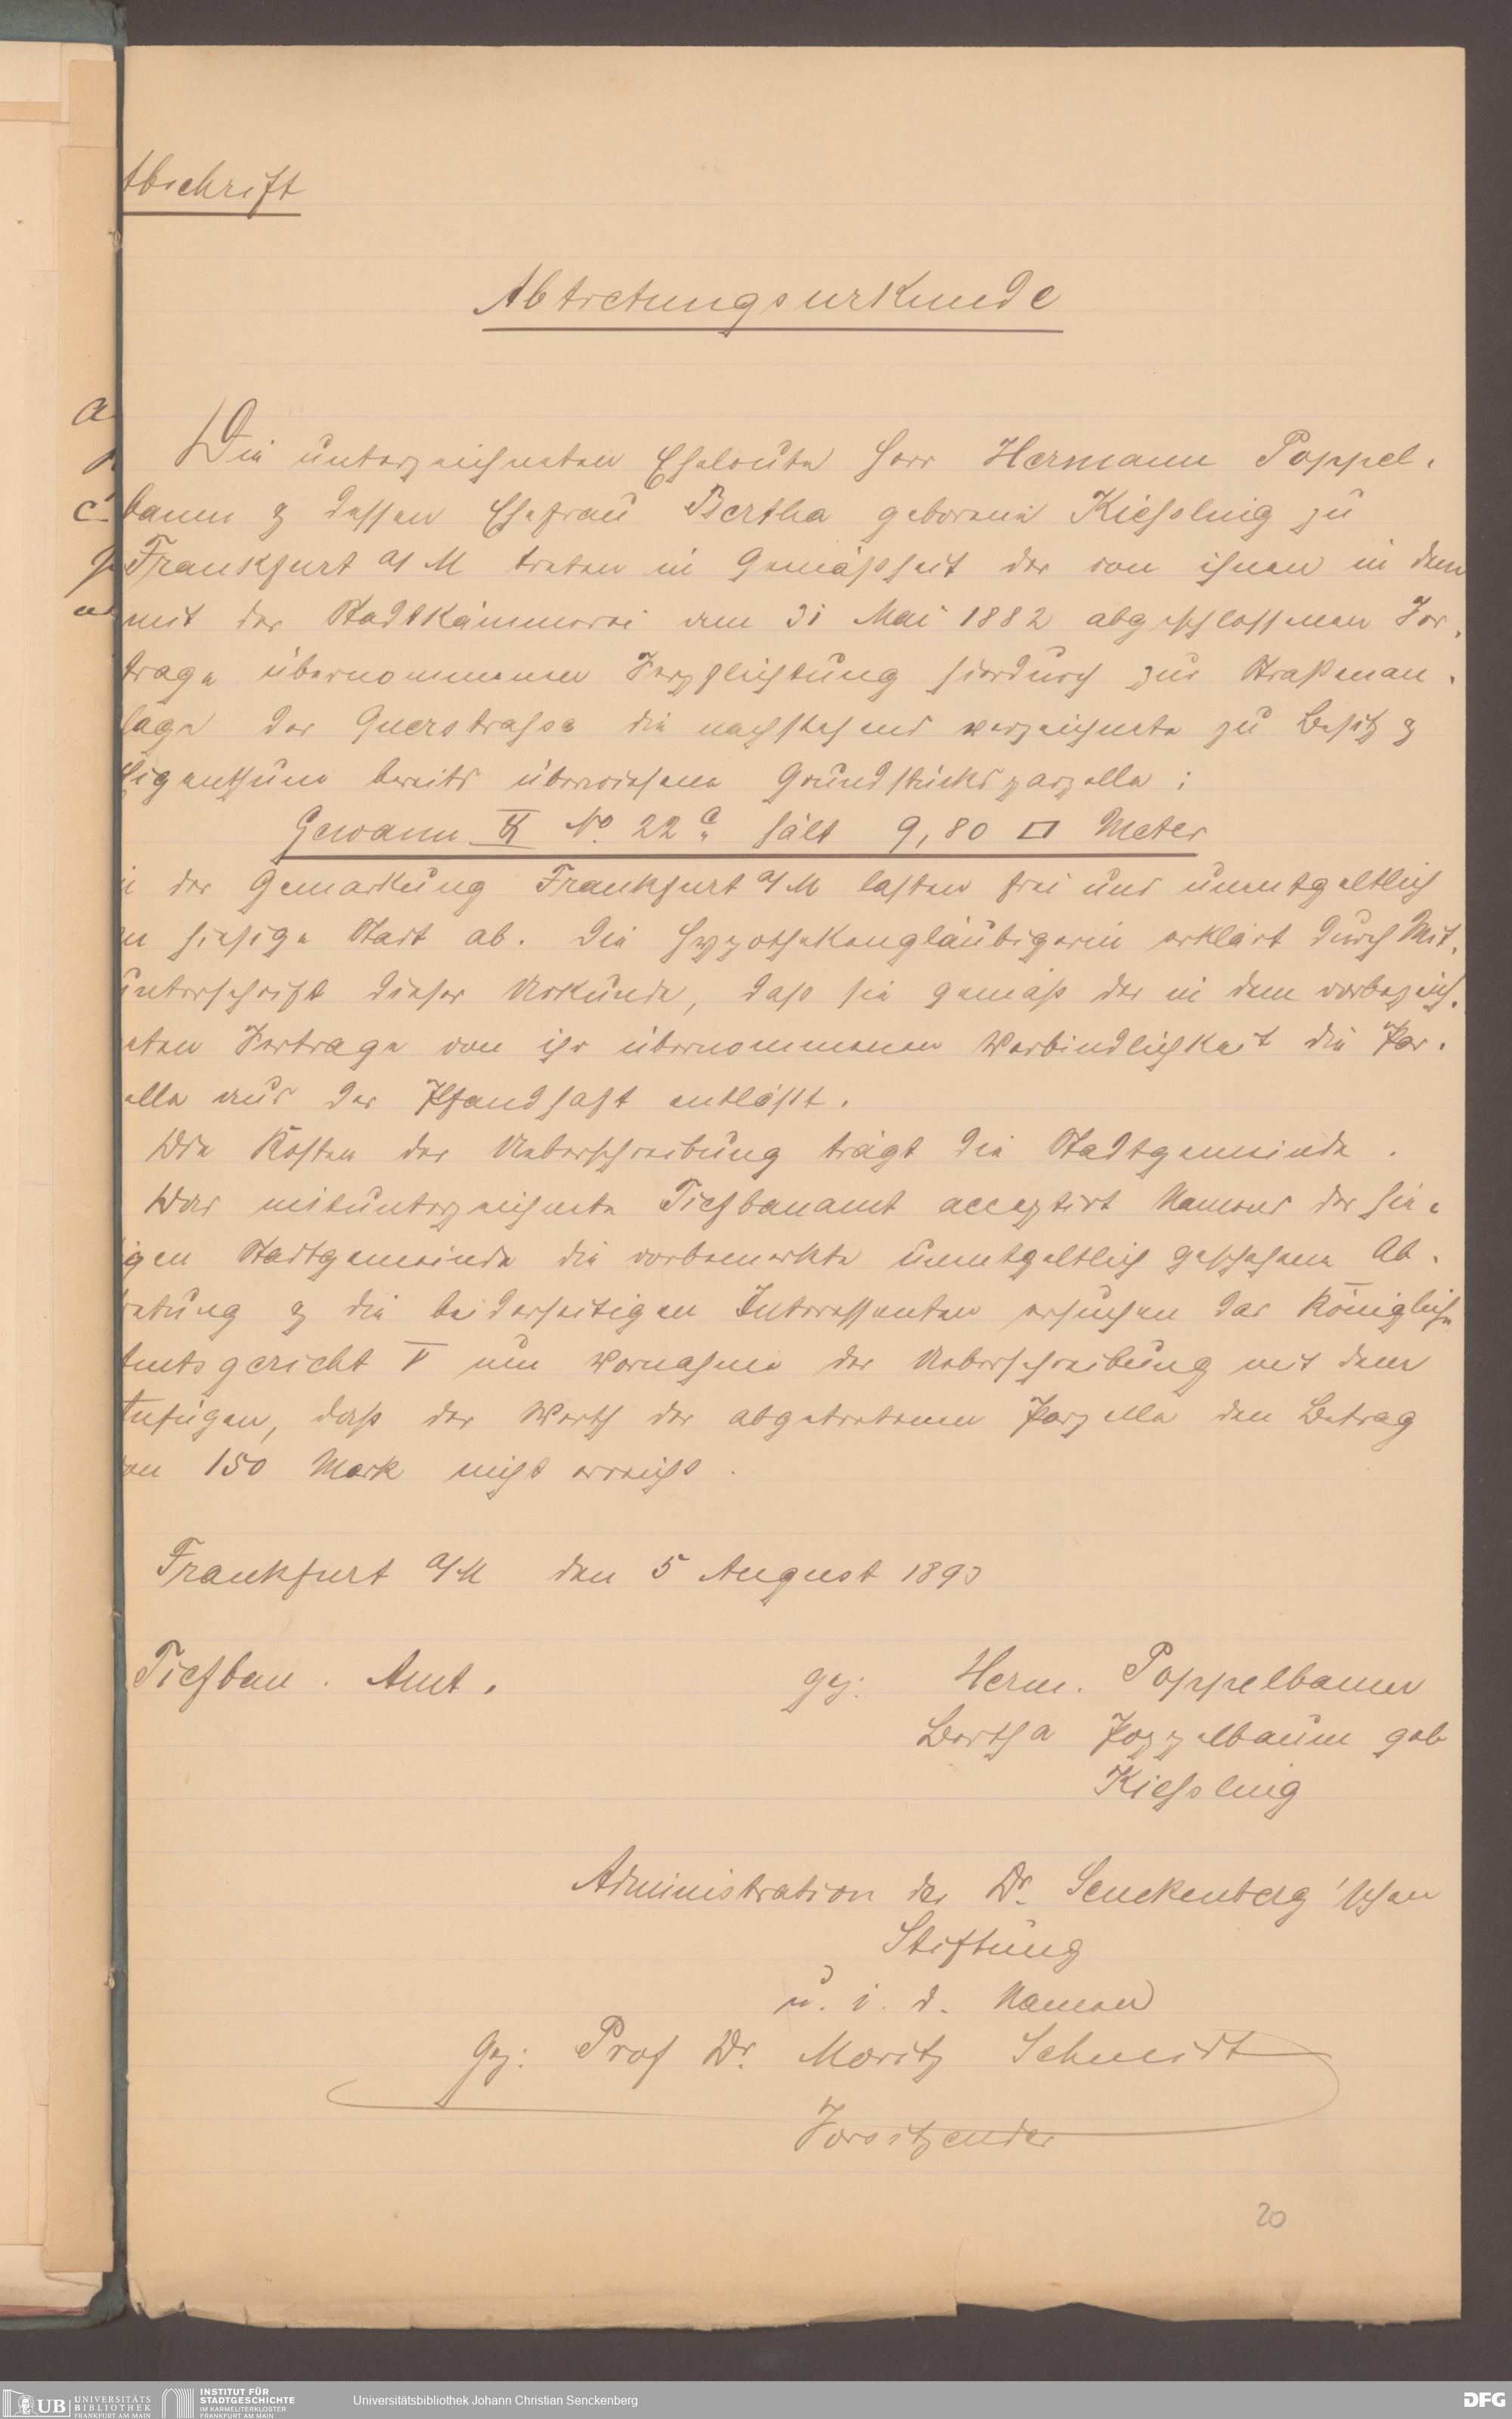 Abschrift
Abtretungsurkunde
Die unterzeichneten Eheleute Herr Hermann Poppel-
baum & dessen Ehefrau Bertha geborene Kießling zu
Frankfurt a/M treten in Gemäßheit der von ihnen in dem
mit der Stadtkämmerei am 31 Mai 1882 abgeschlossenen Ver-
trage übernommenen Verpflichtung hierdurch zur Straßenan-
lage der Querstrasse die nachstehend verzeichnete zu Besitz &
Eigenthum bereits überwiesene Grundstücksparzelle:
Gewann No. 22 a hält 9,80 □ Meter
in der Gemarkung Frankfurt a/M lasten frei und unentgeltlich
an hiesige Stadt ab. Die Hypothekengläubigerin erklärt durch Mit-
unterschrift dieser Urkunde, daß sie gemäß der in dem vorbezeich-
neten Vertrage von ihr übernommenen Verbindlichkeit die Par-
zelle aus der Pfandhaft entläßt.
Die Kosten der Ueberschreibung trägt die Stadtgemeinde.
Das mitunterzeichnete Tiefbauamt acceptirt Namens der hie-
sigen Stadtgemeinde die vorbemerkte unentgeltlich geschehene Ab-
tretung & die beiderseitigen Interessenten ersuchen das Königliche
Amtsgericht V um Vornahme der Ueberschreibung mit dem
Anfügen, daß der Werth der abgetretenen Parzelle den Betrag
von 150 Mark nicht erreicht.
Frankfurt a/M den 5 August 1893
Tiefbau-Amt. gez: Herm. Poppelbaum
Bertha Poppelbaum geb
Kießling
Administration der Dr. Senckenberg'schen
Stiftung
u. i. d. Namen
gez: Prof Dr. Moritz Schmidt
Vorsitzender
20
UB UNIVERSITÄTS
BIBLIOTHEK
FRANKFURT AM MAIN
INSTITUT FÜR
STADTGESCHICHTE
IM KARMELITERKLOSTER
FRANKFURT AM MAIN
Universitätsbibliothek Johann Christian Senckenberg
DFG